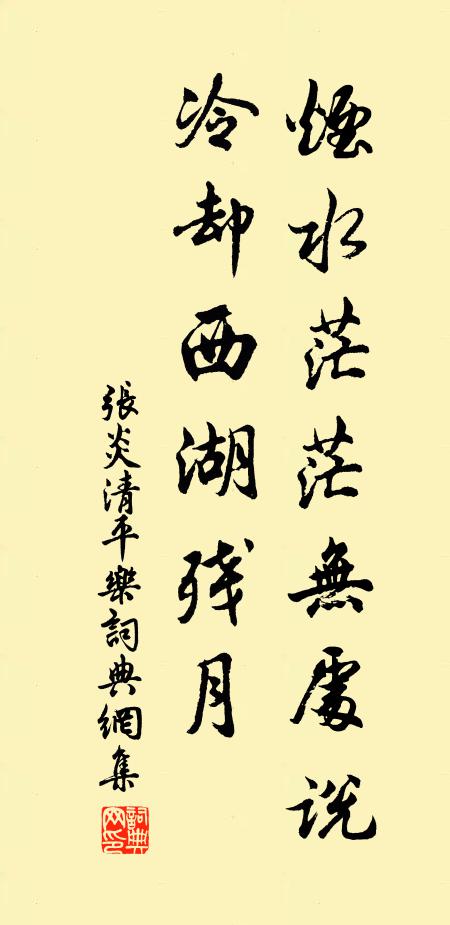 煙水茫茫無處說
冷却西湖残月
張炎清平樂詞典網集
詞典网印